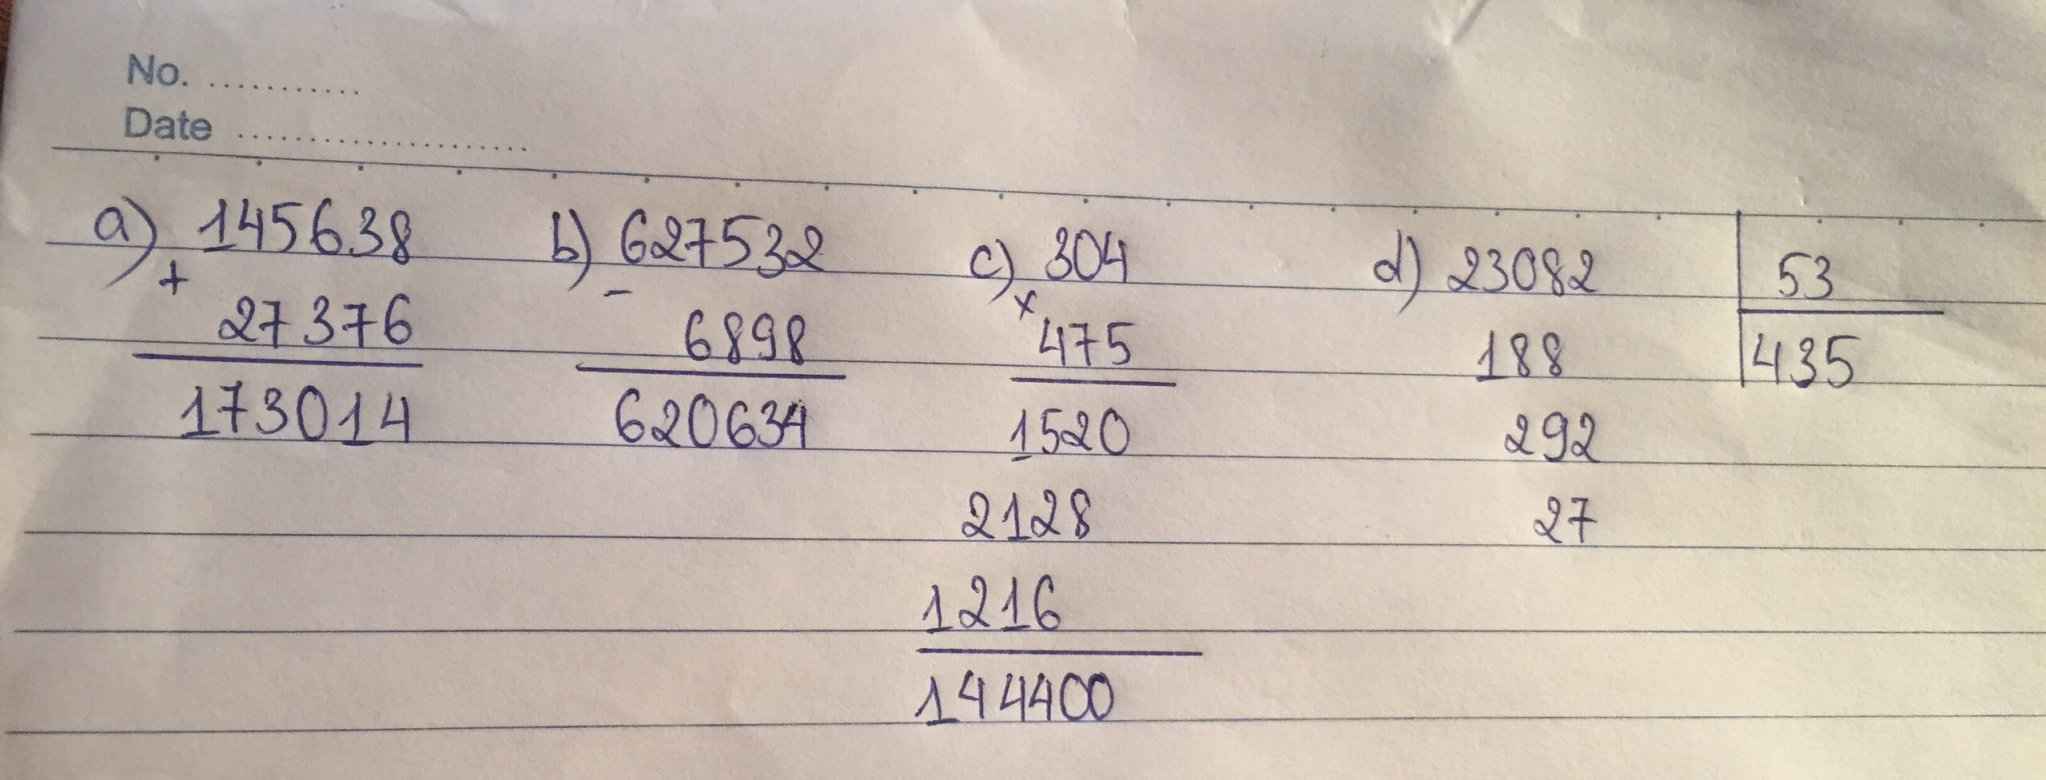 No. ...........
Date .....................
a) 145638 b) 627532 c) 304 d) 23082 53
+ - ×
27376 6898 475 188 435
173014 620634 1520 292
2128 27
1216
144400